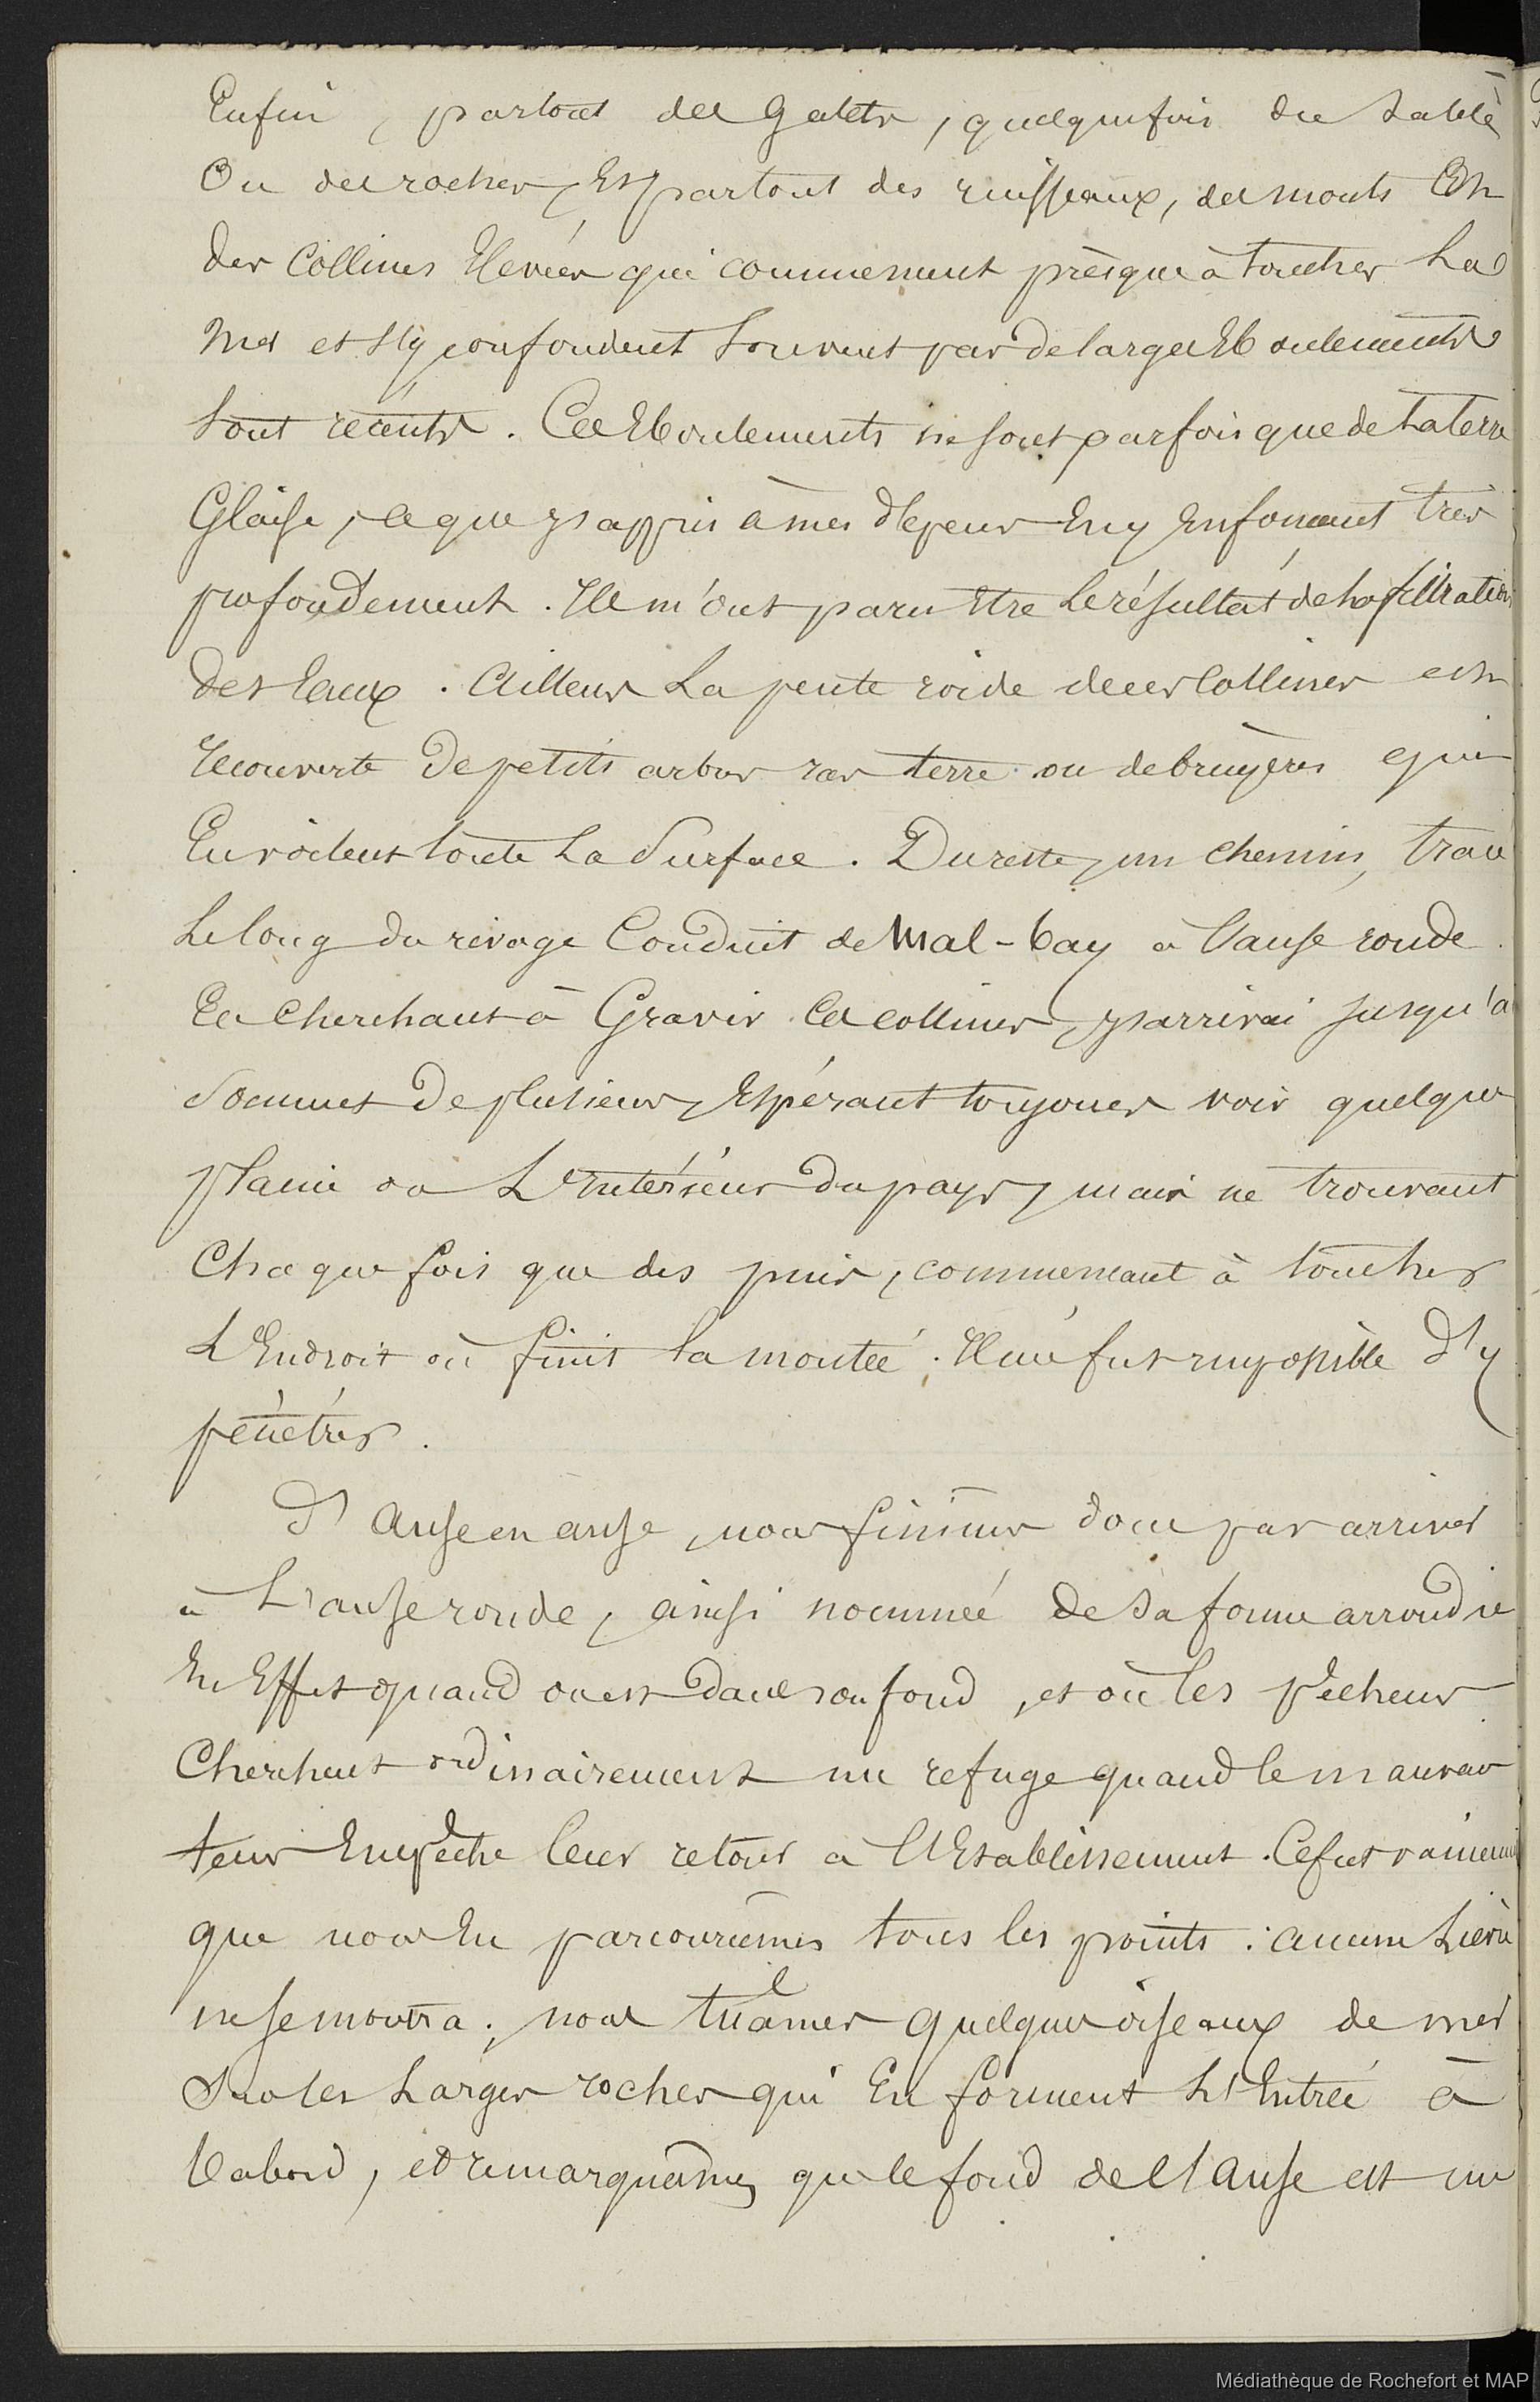 Enfin, partout des Galets, quelquefois du sable
Ou des rochers, Et partout des ruisseaux, des monts Et
des Collines Elevées qui commencent présque à toucher La
Mer et s'y confondent souvent par de larges Eboulements
tout récents. Ces Eboulements ne sont parfois que de la terre
Glaise, ce que j'appris à mes dépens En y Enfonçant très
profondement. Ils m'ont paru Etre Le résultat de la filtration
des Eaux. Ailleurs La pente roide de ces Collines est
recouverte de petits arbres ras terre ou de bruyères qui
En voilent toute La Surface. Du reste, un chemin, tracé
Le long du rivage Conduit de Mal-bay à l'anse ronde.
En Cherchant à Gravir Ces collines, j'arrivai jusqu'a
Sommet de plusieurs, Espérant toujours voir quelque
plaine ou L'Intérieur du pays, mais ne trouvant
Chaque fois que des pins, commencant à toucher
L'Endroit où finit la montée. Il me fut impossible d'y
pénétrer.
D'Anse en anse, nous finimes donc par arriver
à L'anse ronde, ainsi nommée de Sa forme arrondie
En Effet quand on est dans son fond, et où les pêcheurs
Cherchent ordinairement un refuge quand le mauvais
tems Empêche leur retour à l'Etablissement. Ce fut vainement
que nous En parcourûmes tous les points : aucun Lièvre
ne se montra ; nous tuâmes quelques oiseaux de mer
Sur les Larges rochers qui En forment L'Entrée à
babord, et remarquâmes que le fond de l'Anse est un
Médiathèque de Rochefort et MAP